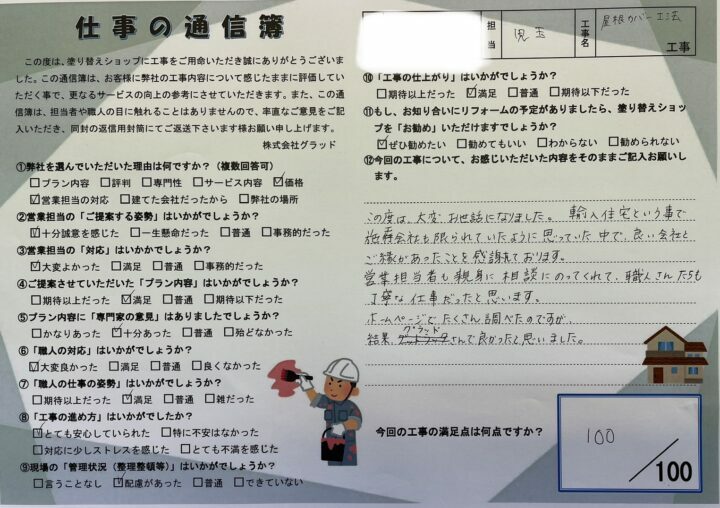 仕事の通信簿
この度は、塗り替えショップに工事をご用命いただき誠にありがとうございま
した。この通信簿は、お客様に弊社の工事内容について感じたままに評価してい
ただく事で、更なるサービスの向上の参考にさせていただきます。また、この通
信簿は、担当者や職人の目に触れることはありませんので、率直なご意見をご記
入いただき、同封の返信用封筒にてご返送下さいます様お願い申し上げます。
株式会社グラッド
①弊社を選んでいただいた理由は何ですか？（複数回答可）
□プラン内容 □評判 □専門性 □サービス内容 ☑価格
☑営業担当の対応 □建てた会社だったから □弊社の場所
②営業担当の「ご提案する姿勢」はいかがでしょうか？
☑十分誠意を感じた □一生懸命だった □普通 □事務的だった
③営業担当の「対応」はいかかでしょうか？
☑大変よかった □満足 □普通 □事務的だった
④ご提案させていただいた「プラン内容」はいかがでしょうか？
□期待以上だった ☑満足 □普通 □期待以下だった
⑤プラン内容に「専門家の意見」はありましたでしょうか？
□かなりあった ☑十分あった □普通 □殆どなかった
⑥「職人の対応」はいかがでしょうか？
☑大変良かった □満足 □普通 □良くなかった
⑦「職人の仕事の姿勢」はいかがでしょうか？
□期待以上だった ☑満足 □普通 □雑だった
⑧「工事の進め方」はいかがでしたか？
☑とても安心していられた □特に不安はなかった
□対応に少しストレスを感じた □とても不満を感じた
⑨現場の「管理状況（整理整頓等）」はいかがでしょうか？
□言うことなし ☑配慮があった □普通 □できていない
担当 児玉 工事名 屋根カバー工法 工事
⑩「工事の仕上がり」はいかがでしょうか？
□期待以上だった ☑満足 □普通 □期待以下だった
⑪もし、お知り合いにリフォームの予定がありましたら、塗り替えショッ
プを「お勧め」いただけますでしょうか？
☑ぜひ勧めたい □勧めてもいい □わからない □勧められない
⑫今回の工事について、お感じいただいた内容をそのままご記入お願いし
ます。
この度は、大変お世話になりました。輸入住宅という事で
施工会社も限られていたように思っていた中で、良い会社と
ご縁があったことを感謝しております。
営業担当者も親身に相談にのってくれて、職人さんたちも
丁寧な仕事だったと思います。
ホームページでたくさん調べたのですが、
結果、グラッドさんで良かったと思いました。
今回の工事の満足点は何点ですか？
100
/100